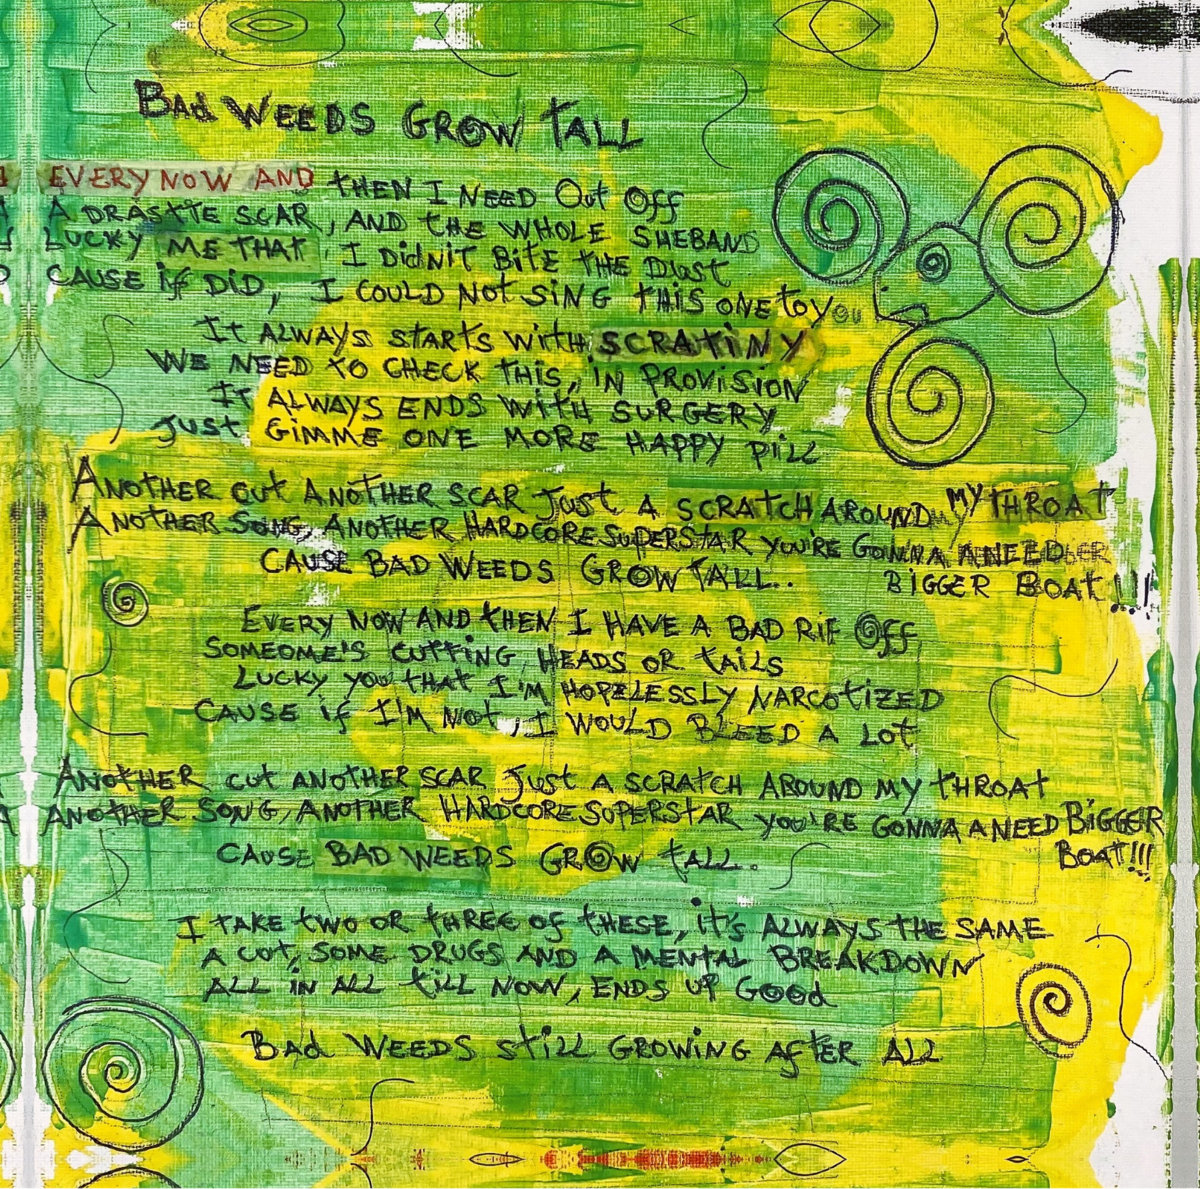 Bad WEEDS GROW TALL
EVERY NOW AND THEN I NEED Out Off
A DRASTIE SCAR, AND the WHOLE SHEBAND
LUCKY ME THAT, I DidN'T BitE THE Dust
CAUSE if DiD, I COULD NOT SING THIS ONE to you
It ALWAYS STARTS WitH SCRATINY
WE NEED TO CHECK THIS, IN PROVISION
It ALWAYS ENDS WitH SURGERY
Just GIMME ONE MORE HAPPY PILL
ANOTHER CUT ANOTHER SCAR Just A SCRATCH AROUND MY THROAT
ANOTHER SONG, ANOTHER HARDCORE SUPERSTAR YOU'RE GONNA A NEED
BIGGER BOAT!!!
CAUSE BAD WEEDS GROW TALL..
EVERY NOW AND THEN I HAVE A BAD RIF Off
SOMEOME'S CUTTING, HEADS OR tAILS
LUCKY YOU THAT I'M HOPELESSLY NARCOTIZED
CAUSE if I'M NOT, I WOULD BLEED A LOT
ANOTHER CUT ANOTHER SCAR Just A SCRATCH AROUND MY THROAT
ANOTHER SONG, ANOTHER HARDCORE SUPERSTAR YOU'RE GONNA A NEED BIGGER
BOAT!!!
CAUSE BAD WEEDS GROW TALL.
I TAKE TWO OR THREE OF THESE, it's ALWAYS THE SAME
A CUT, SOME DRUGS AND A MENTAL BREAKDOWN
ALL IN ALL tILL NOW, ENDS UP GOOd
BAd WEEDS STILL GROWING AFTER ALL